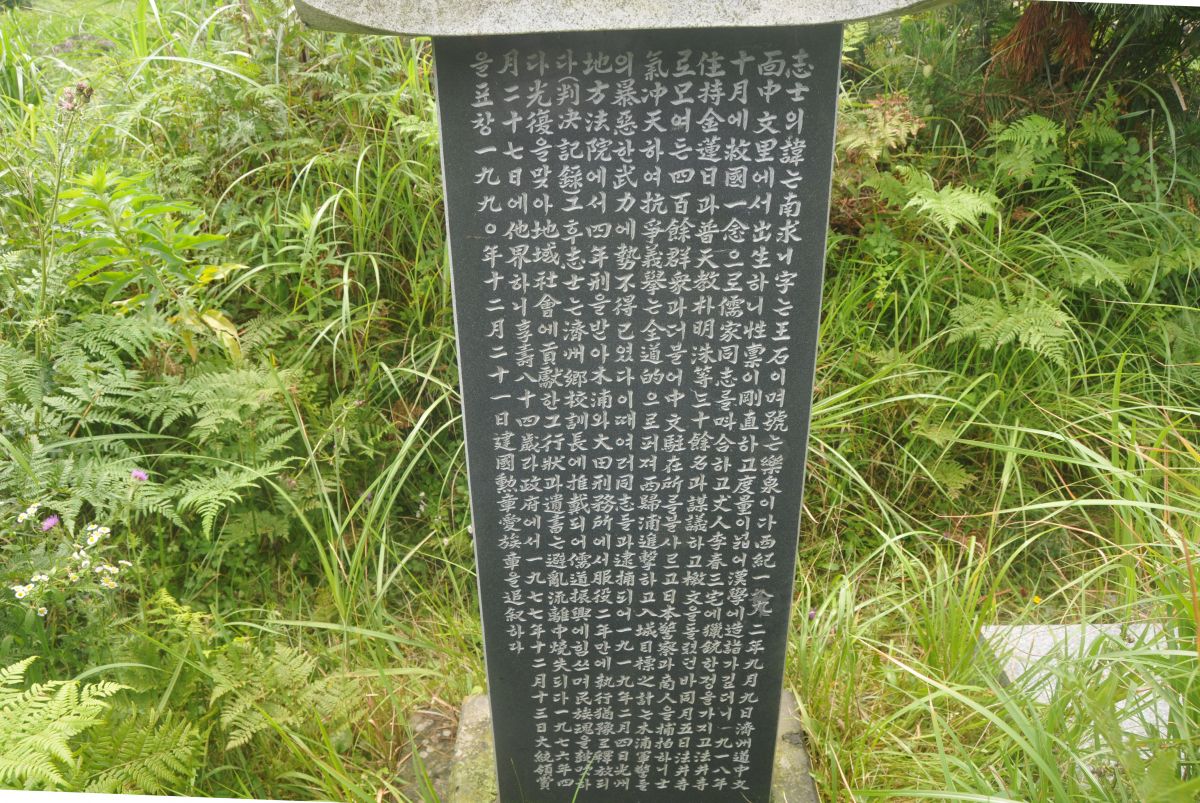 志士의諱는南求니字는王石이며號는樂泉이다西紀一八九二年九月九日濟州道中文
面中文里에서出生하니性稟이剛直하고度量이넓어漢學에造詣가깊더니一九一八年
十月에救國一念으로儒家同志를마合하고丈人李春三宅에獵銃한정을가지고法井寺
住持金蓮日과普天敎朴明洙等三十餘名과謀議하고檄文을돌렸던바同月五日法井寺
로모여든四百餘群衆과더불어中文駐在所를불사르고日本警察과商人을捕拍하니士
氣冲天하여抗爭義擧는全道的으로퍼져西歸浦進擊하고入城目標之計는木浦軍警들
의暴惡한武力에勢不得已였다이때여러同志들과逮捕되어一九一九年二月四日光州
地方法院에서四年刑을받아木浦와大田刑務所에서服役二年만에執行猶豫로釋放되
다(判決記錄)그후志士는濟州鄕校訓長에推戴되어儒道振興에힘쓰며民族魂을鼓吹하
다光復을맞아地域社會에貢獻한그行狀과遺書는避亂流離中燒失되다一九七六年四
月二十七日에他界하니享壽八十四歲라政府에서一九七七年十二月十三日大統領賞
을표창一九九０年十二月二十一日建國勲章愛族章을追敍하다